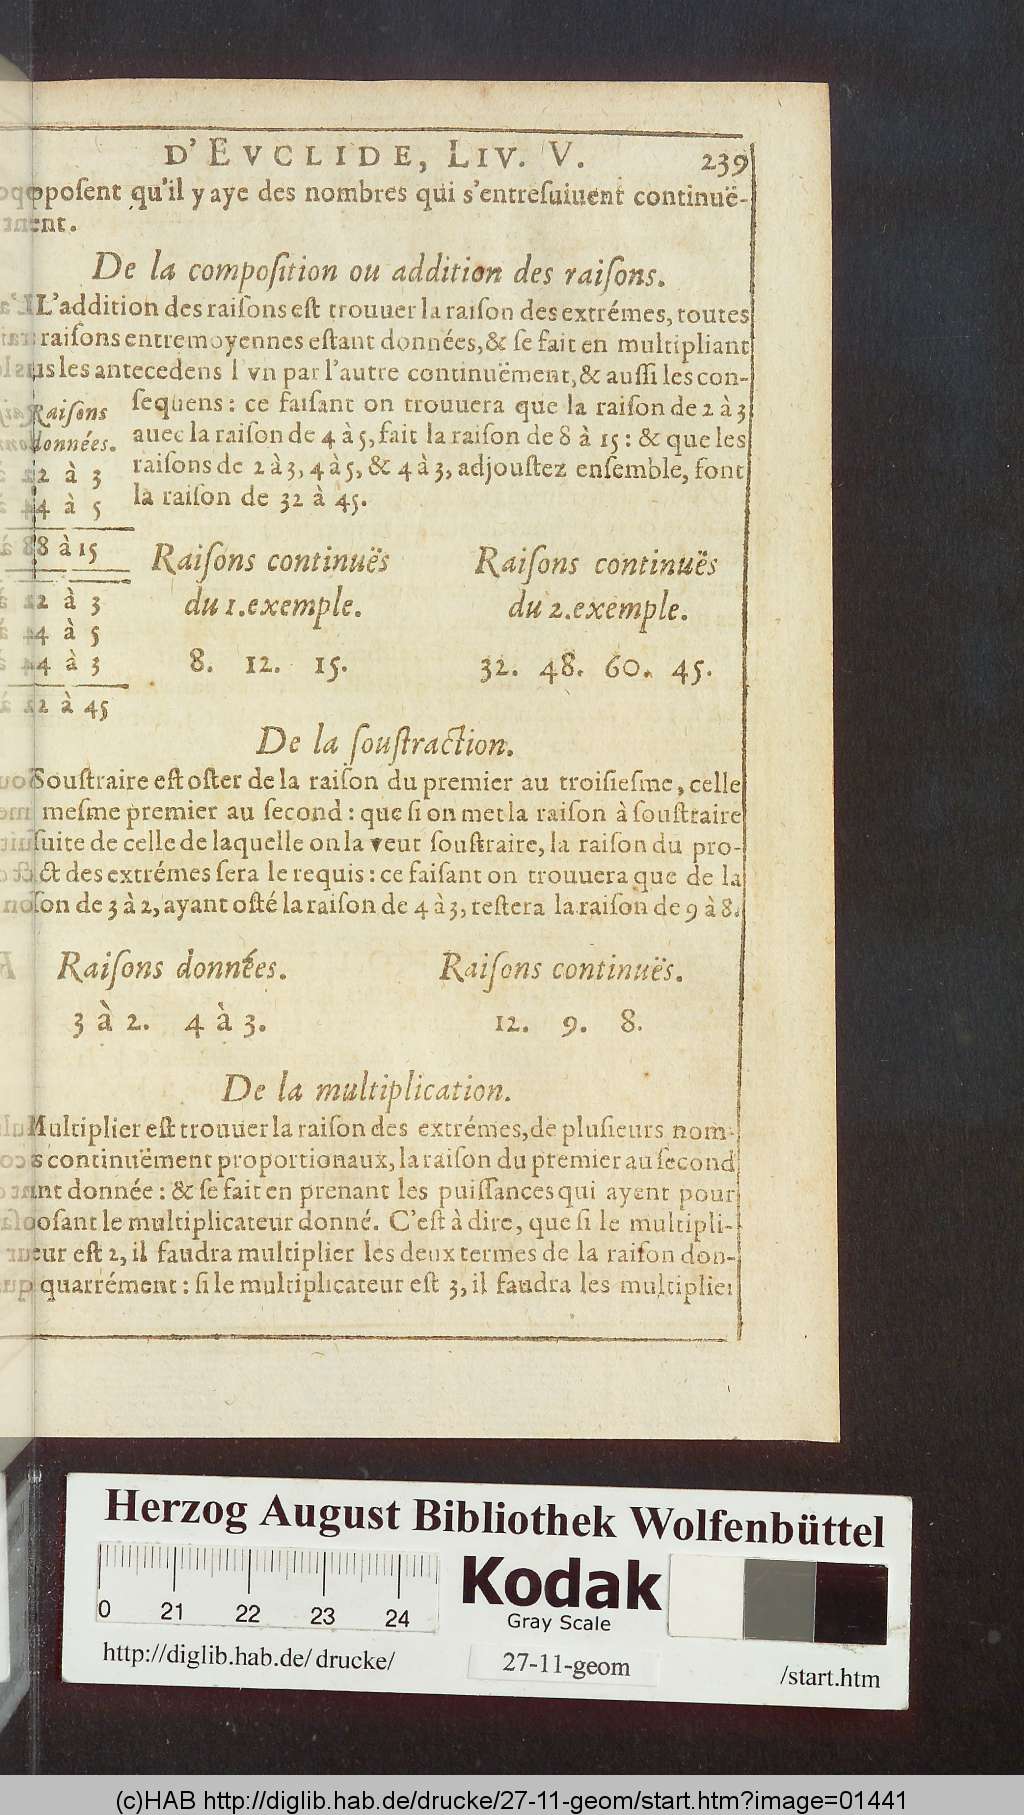 D'EVCLIDE, LIV. V. 239
posent qu'il y aye des nombres qui s'entresuiuent continuë-
ent.
De la composition ou addition des raisons.
L'addition des raisons est trouuer la raison des extrémes, toutes
raisons entremoyennes estant données, & se fait en multipliant
les antecedens l'vn par l'autre continuëment, & aussi les con-
sequens: ce faisant on trouuera que la raison de 2 à 3
auec la raison de 4 à 5, fait la raison de 8 à 15: & que les
raisons de 2 à 3, 4 à 5, & 4 à 3, adjoustez ensemble, font
la raison de 32 à 45.
Raisons
données.
2 à 3
4 à 5
8 à 15
2 à 3
4 à 5
4 à 3
2 à 45
Raisons continuës
du 1. exemple.
8. 12. 15.
Raisons continuës
du 2. exemple.
32. 48. 60. 45.
De la soustraction.
Soustraire est oster de la raison du premier au troisiesme, celle
mesme premier au second: que si on met la raison à soustraire
suite de celle de laquelle on la veut soustraire, la raison du pro-
ct des extrémes sera le requis: ce faisant on trouuera que de la
son de 3 à 2, ayant osté la raison de 4 à 3, restera la raison de 9 à 8.
Raisons données.
3 à 2. 4 à 3.
Raisons continuës.
12. 9. 8.
De la multiplication.
Multiplier est trouuer la raison des extrémes, de plusieurs nom-
s continuëment proportionaux, la raison du premier au second
nt donnée: & se fait en prenant les puissances qui ayent pour
osant le multiplicateur donné. C'est à dire, que si le multipli-
eur est 2, il faudra multiplier les deux termes de la raison don-
quarrément: si le multiplicateur est 3, il faudra les multiplier
Herzog August Bibliothek Wolfenbüttel
0 21 22 23 24
Kodak
Gray Scale
http://diglib.hab.de/drucke/
27-11-geom
/start.htm
(c)HAB http://diglib.hab.de/drucke/27-11-geom/start.htm?image=01441